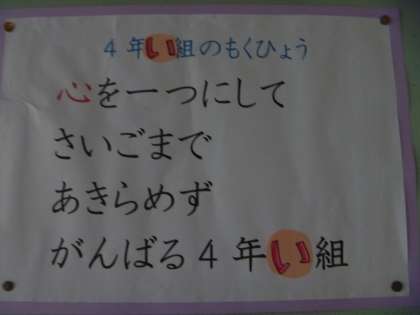 4年い組のもくひょう
心を一つにして
さいごまで
あきらめず
がんばる4年い組